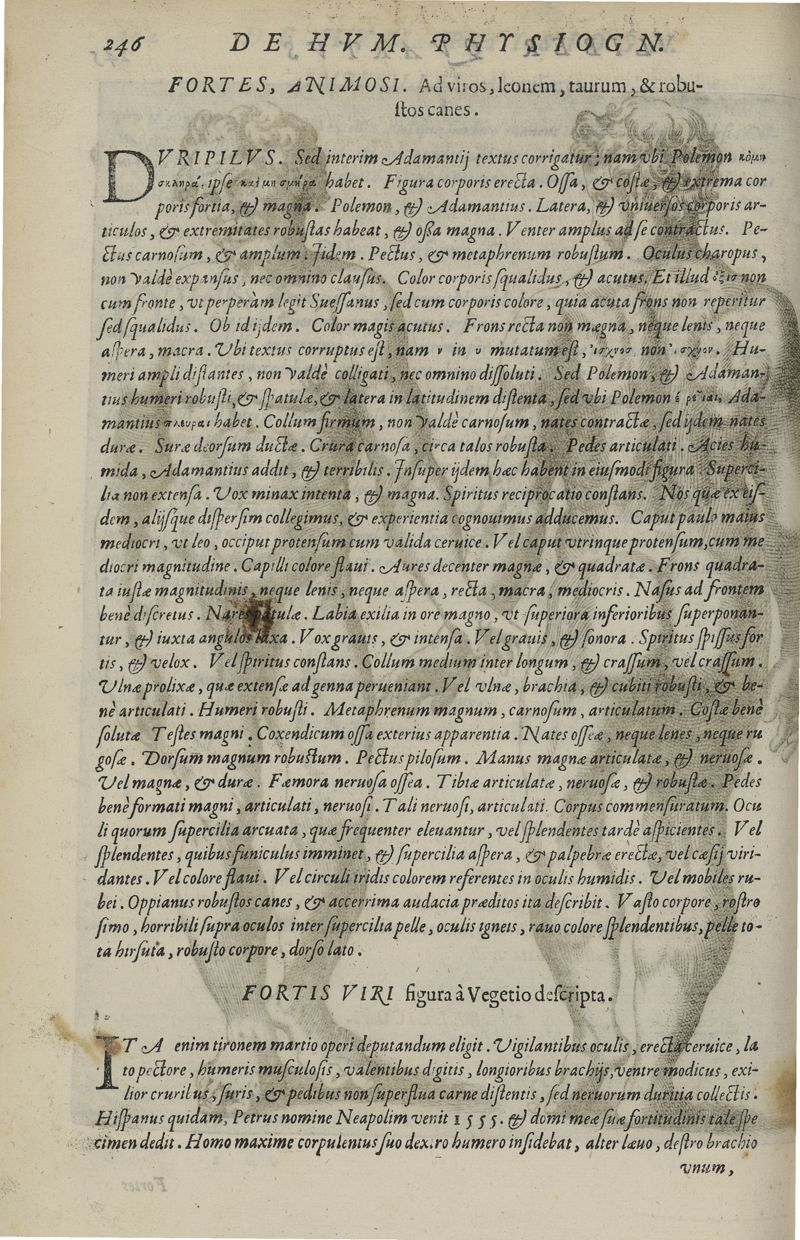 246 DE HVM. PHYSIOGN.
FORTES, ANIMOSI. Ad viros, leonem, taurum, & robu-
stos canes.
DVRIPILVS. Sed interim Adamantij textus corrigatur; nam vbi Polemon κόμη
σκληρά, ipse habet. Figura corporis erecta. Ossa, & costæ, & extrema cor
poris fortia, & magna. Polemon, & Adamantius. Latera, & vniuersos corporis ar-
ticulos, & extremitates robustas habeat, & ossa magna. Venter amplus ad se contractus. Pe-
ctus carnosum, & amplum. Iidem. Pectus, & metaphrenum robustum. Oculus charopus,
non valdè expansus, nec omnino clausus. Color corporis squalidus, & acutus. Et illud non
cum fronte, vt perperàm legit Suessanus, sed cum corporis colore, quia acuta frons non reperitur
sed squalidus. Ob id ijdem. Color magis acutus. Frons recta non mægna, neque lenis, neque
aspera, macra. Vbi textus corruptus est, nam ν in υ mutatum est, ἰσχνοσ non ἰσχυρ. Hu-
meri ampli distantes, non valdè colligati, nec omnino dissoluti. Sed Polemon, & Adaman-
tius humeri robusti, & spatulæ, & latera in latitudinem distenta, sed vbi Polemon Ada-
mantius πλευραι habet. Collum firmum, non valdè carnosum, nates contractæ, sed ijdem nates
duræ. Suræ deorsum ductæ. Crura carnosa, circa talos robusta. Pedes articulati. Acies hu-
mida, Adamantius addit, & terribilis. Insuper ijdem hæc habent in eiusmodi figura Superci-
lia non extensa. Vox minax intenta, & magna. Spiritus reciprocatio constans. Nos quæ ex eis-
dem, alijsque dispersim collegimus, & experientia cognouimus adducemus. Caput paulò maius
mediocri, vt leo, occiput protensum cum valida ceruice. Vel caput vtrinque protensum, cum me
diocri magnitudine. Capilli colore flaui. Aures decenter magnæ, & quadratæ. Frons quadra-
ta iustæ magnitudinis, neque lenis, neque aspera, recta, macra, mediocris. Nasus ad frontem
benè discretus. Nares patulæ. Labia exilia in ore magno, vt superiora inferioribus superponan-
tur, & iuxta angulos laxa. Vox grauis, & intensa. Vel grauis, & sonora. Spiritus spissus for
tis, & velox. Vel spiritus constans. Collum medium inter longum, & crassum, vel crassum.
Vlnæ prolixæ, quæ extensæ ad genna perueniant. Vel vlnæ, brachia, & cubiti robusti, & be-
nè articulati. Humeri robusti. Metaphrenum magnum, carnosum, articulatum. Costæ benè
solutæ Testes magni. Coxendicum ossa exterius apparentia. Nates osseæ, neque lenes, neque ru
gosæ. Dorsum magnum robustum. Pectus pilosum. Manus magnæ articulatæ, & neruosæ.
Vel magnæ, & duræ. Fæmora neruosa ossea. Tibiæ articulatæ, neruosæ, & robustæ. Pedes
benè formati magni, articulati, neruosi. Tali neruosi, articulati. Corpus commensuratum. Ocu
li quorum supercilia arcuata, quæ frequenter eleuantur, vel splendentes tardè aspicientes. Vel
splendentes, quibus funiculus imminet, & supercilia aspera, & palpebræ erectæ, vel cæsij viri-
dantes. Vel colore flaui. Vel circuli iridis colorem referentes in oculis humidis. Vel mobiles ru-
bei. Oppianus robustos canes, & accerrima audacia præditos ita describit. Vasto corpore, rostro
simo, horribili supra oculos inter supercilia pelle, oculis igneis, rauo colore splendentibus, pelle to-
ta hirsuta, robusto corpore, dorso lato.
FORTIS VIRI figura à Vegetio descripta.
ITA enim tironem martio operi deputandum eligit. Vigilantibus oculis, erecta ceruice, la
to pectore, humeris musculosis, valentibus digitis, longioribus brachijs, ventre modicus, exi-
lior cruribus, suris, & pedibus non superflua carne distentis, sed neruorum duritia collectis.
Hispanus quidam, Petrus nomine Neapolim venit 1555. & domi meæ suæ fortitudinis tale spe
cimen dedit. Homo maxime corpulentus suo dextro humero insidebat, alter læuo, destro brachio
vnum,